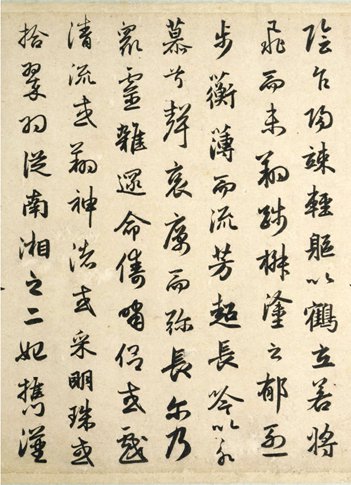 陰乍陽竦輕軀以鶴立若將
飛而未翔踐椒塗之郁烈
步衡薄而流芳超長吟以永
慕兮聲哀厲而弥長尔乃
衆靈雜遝命儔嘯侣或戲
清流或翔神渚或采明珠或
拾翠羽從南湘之二妃攜漢